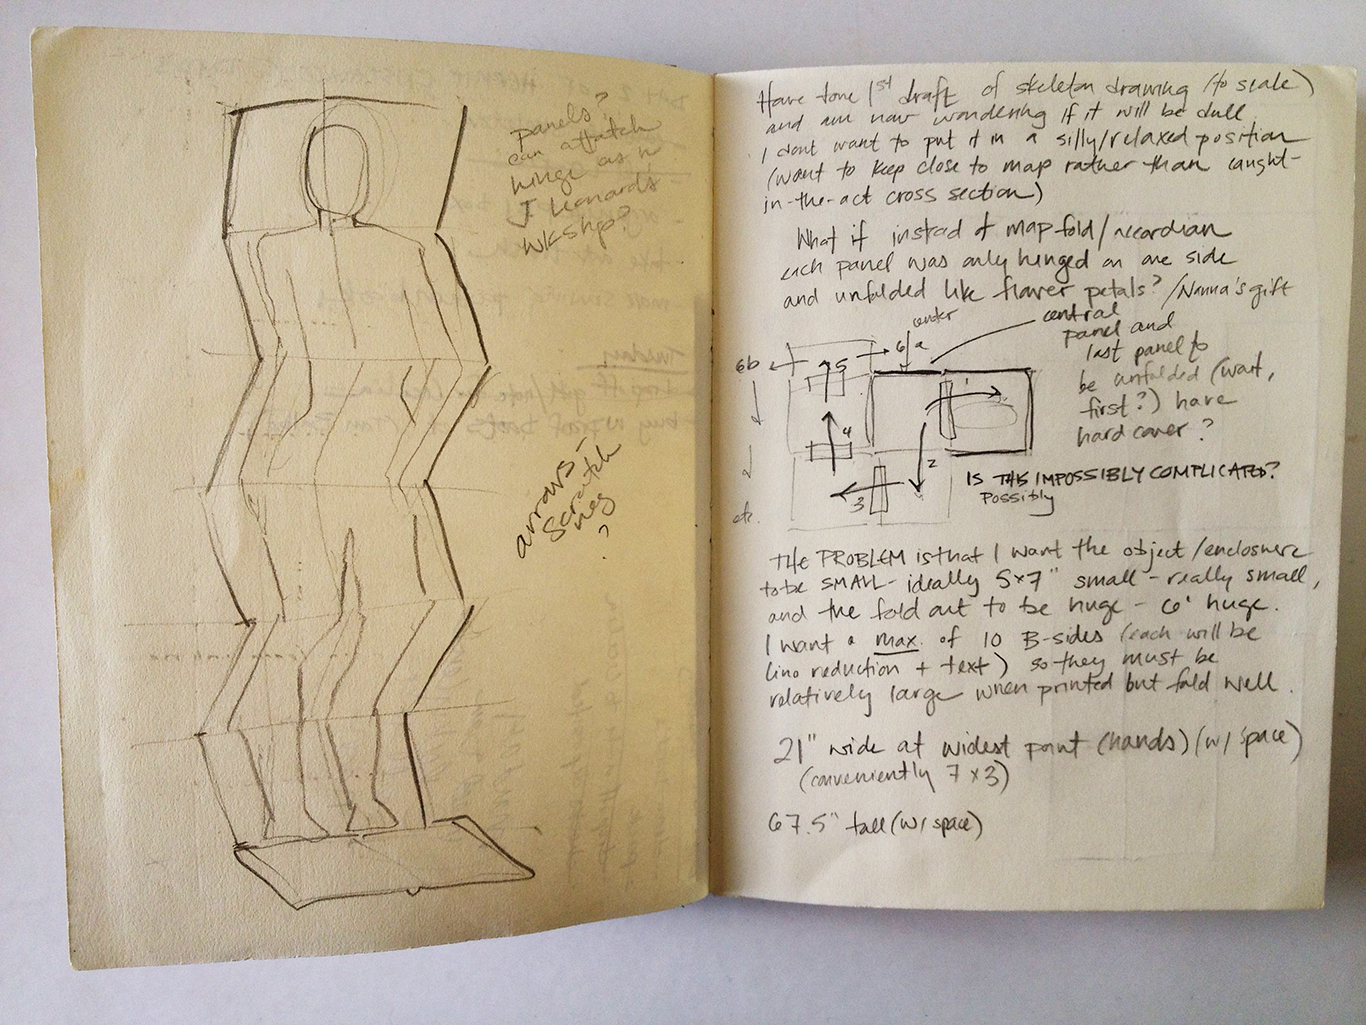 panels?
can attatch
hinge as in
J Leonards
wkshop?
arrows -
scratch
neg
?
Have done 1st draft of skeleton drawing (to scale)
and am now wondering if it will be dull
I dont want to put it in a silly/relaxed position
(want to keep close to map rather than caught-
in-the-act cross section)
What if instead of map fold/accordian
each panel was only hinged on one side
and unfolded like flower petals? /Nanna's gift
under
central
panel and
last panel to
be unfolded (wait,
first?) have
hard cover?
6b
5
6/a
1
4
2
3
etc.
IS THIS IMPOSSIBLY COMPLICATED?
Possibly
THE PROBLEM is that I want the object/enclosure
to be SMALL - ideally 5x7" small - really small,
and the fold out to be huge - 6' huge.
I want a max. of 10 B-sides (each will be
lino reduction + text) so they must be
relatively large when printed but fold well.
21" wide at widest point (hands) (w/ space)
(conveniently 7 x 3)
67.5" tall (w/ space)